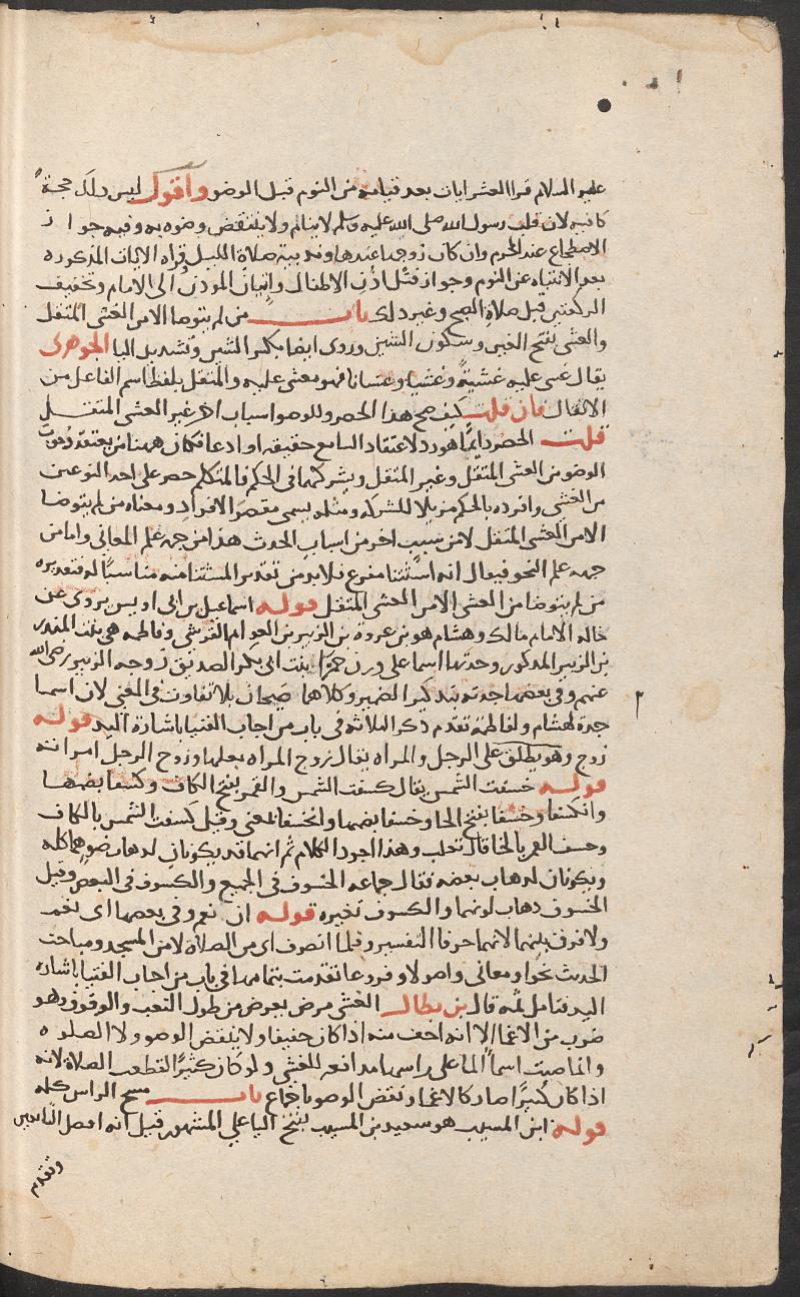 عليه السلام قرا العشر ايات بعد قيامه من النوم قبل الوضو واقول ليس ذلك حجة
كافيه لان قلب رسول الله صلى الله عليه وسلم لا ينام ولا ينتقض وضوه به وفيه جواز
الاضطجاع عند المحرم وان كان زوجها عندها وندبية صلاة الليل قراه الايات المذكوره
بعد الانتباه عن النوم وجواز فتل اذن الاطفال واتيان الموذن الى الامام وتخفيف
الركعتين قبل صلاة الصبح وغير ذلك باب من لم يتوضا الا من الغشى المثقل
والغشى بفتح الغين وسكون الشين وروى ايضا بكسر الشين وتشديد اليا الجوهرى
يقال غشى عليه غشيةً وغشيا وغشيانا فهو مغشى عليه والمثقل بلفظ اسم الفاعل من
الاثقال فان قلت كيف صح هذا الحصر وللوضو اسباب اخر غير الغشى المثقل
قلت الحصر دايما هو رد لاعتقاد السامع حقيقه او ادعا فكان ههنا من يعتقد وجوب
الوضو من الغشى المثقل وغير المثقل ويشركهما فى الحكم فالمتكلم حصر على احد النوعين
من الغشى وافرده بالحكم مزيلا للشركه ومثله يسمى بقصر الافراد ومعناه من لم يتوضا
الا من الغشى المثقل لا من سبب اخر من اسباب الحدث هذا من جهه علم المعانى واما من
جهه علم النحو فيقال انه استثنا مفرغ فلا بد من تقدير المستثنا منه مناسبًا له فتقديره
من لم يتوضا من الغشى الا من الغشى المثقل قوله اسماعيل بن ابى اويس يروى عن
خاله الامام مالك وهشام هو بن عروة بن الزبير بن العوام القرشى وفاطمه هى بنت المنذر
بن الزبير المذكور وجدتها اسما على وزن حمرا بنت ابى بكر الصديق زوجه الزبير رضى الله
عنهم وفى بعضها جدته بتذكير الضمير وكلاهما صحيحان بلا تفاوت فى المعنى لان اسما
جدة لهشام ولفاطمة تقدم ذكر الثلاثه فى باب من اجاب الفتيا باشارة اليد قوله
زوج وهو يطلق على الرجل والمراه يقال زوج المراه بعلها وزوج الرجل امراته
قوله خسفت الشمس يقال كسفت الشمس والقمر بفتح الكاف وكسفا بضمها
وانكسفا وخسفا بفتح الخا وخسفا بضمها وانخسفا بمعنى وقيل كسفت الشمس بالكاف
وخسف القمر بالخا قال ثعلب وهذا اجود الكلام ثم انهما قد يكونان لذهاب ضوهما كله
ويكونان لذهاب بعضه فقال جماعه الخسوف فى الجميع والكسوف فى البعض وقيل
الخسوف ذهاب لونهما والكسوف تغيره قوله ان نعم وفى بعضها اى نعم
ولا فرق بينهما لانهما حرفا التفسير وفلما انصرف اى من الصلاة لا من المسجد ومباحث
الحديث نحوا ومعانى واصولا وفروعا تقدمت بتمامها فى باب من اجاب الفتيا باشاره
اليد فتامل ثمه قال بن بطال الغشى مرض يعرض من طول التعب والوقوف وهو
ضرب من الاغما الا انه اخف منه اذا كان خفيفا ولا ينقض الوضو ولا الصلوه
وانما صبت اسما الما على راسها مدافعه للغشى ولو كان كثيرًا لقطعت الصلاة لانه
اذا كان كثيرًا صار كالاغما وتنقض الوضو باجماع باب مسح الراس كله
قوله ابن المسيب هو سعيد بن المسيب بفتح اليا على المشهور قيل انه افضل التابعين
وتقدم
٢